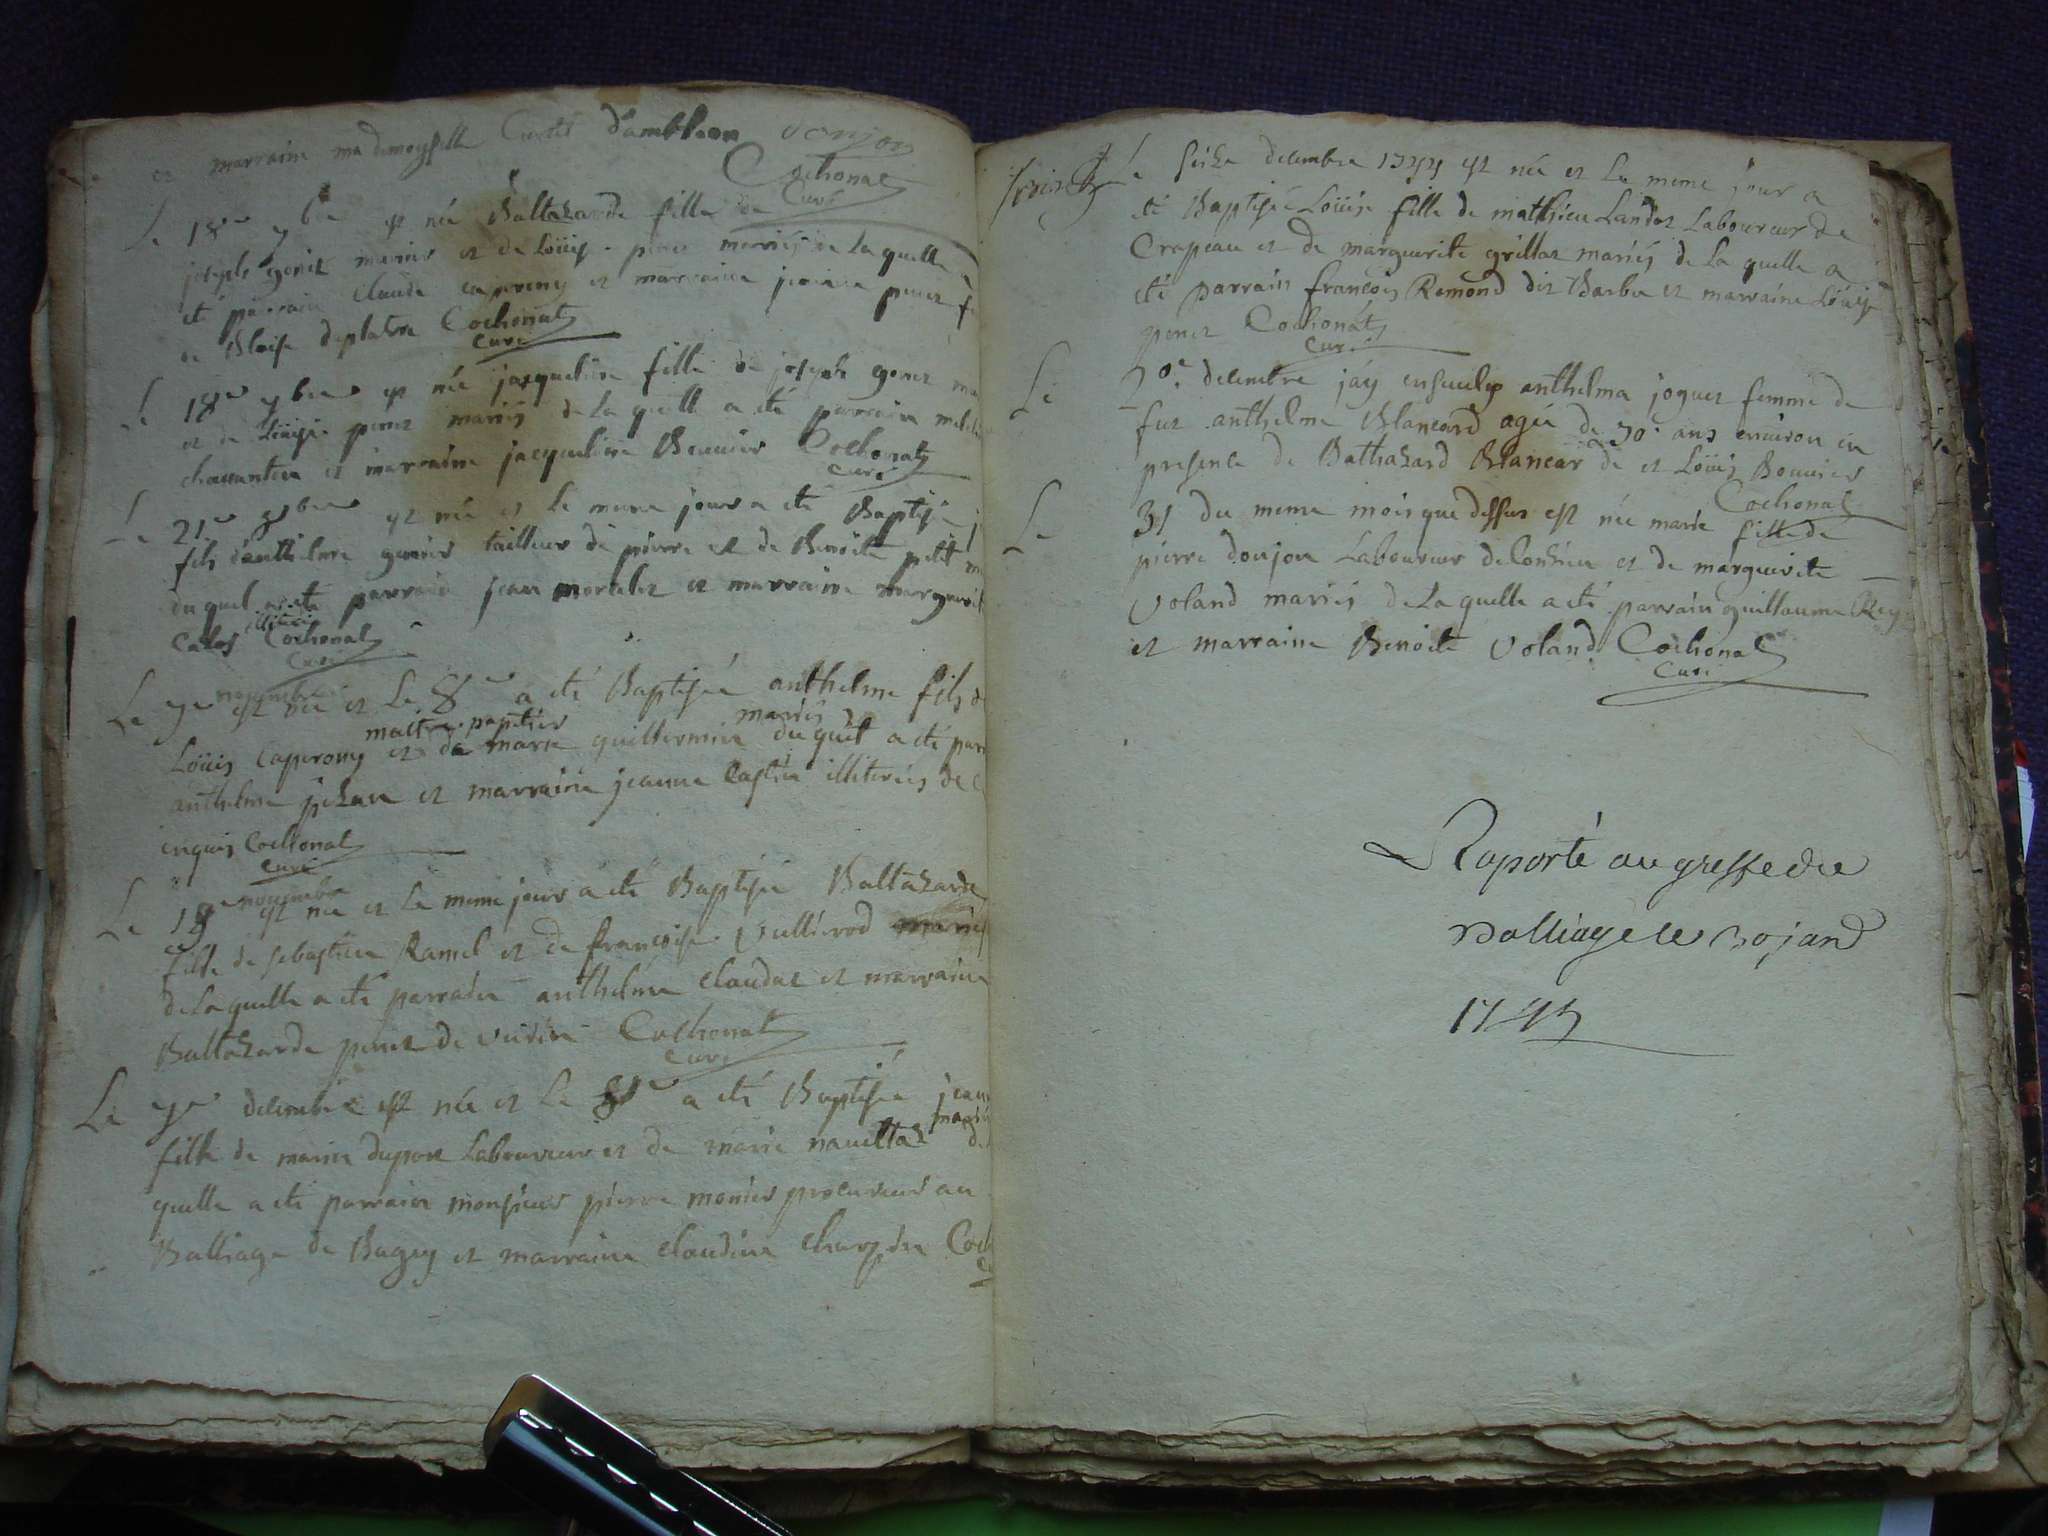 et marraine mademoyselle Curtet d'ambleon donjon
Cochonat
Curé
Le 18e 7bre est née Baltazarde fille de
joseph gonet marier et de Loüise peret mariés de La quelle a
eté parrain Claude caperony et marraine peret
de Blaise Cochonat
Curé
Le 18e 7bre est née jacqueline fille de joseph gonet
et de Loüise peret mariés de La quelle a eté parrain
et marraine jacqueline Bouvier Cochonat
Curé
Le 21e 8bre est née et Le meme jour a eté Baptisé
fils d'anthelme tailleur de pierre et de Benoite petit
du quel a eté parrain jean et marraine marguerite
Cochonat
Curé
novembre
Le 7e est née et Le 8e a eté Baptisée anthelme fils de
maitre papetier mariés
Loüis Caperony et de marie guillermine du quel a eté
anthelme et marraine jeanne illiterés de
enquis Cochonat
Curé
novembre
Le 19e est née et Le meme jour a eté Baptisée Baltazarde
fille de sebastien Ramel et de françoise vulliérod mariés
de La quelle a eté parrain anthelme claudat et marraine
Baltazarde peret de Cochonat
Curé
Le 7e decembre est née et Le 8e a eté Baptisée
mariés
fille de marin dupont Laboureur et de marie
quelle a eté parrain monsieur pierre monier procureur au
Balliage de Bugey et marraine claudine
Le seize decembre 1744 est née et Le meme jour a
eté Baptisée Loüise fille de mathieu Landot Laboureur de
Crapeau et de marguerite grillat mariés de La quelle a
eté parrain françois Remond dit Barbe et marraine Loüise
peret Cochonat
Curé
Le 20e decembre j'ay enseveli anthelma joguet femme de
fut anthelme Blancard agée de 70 ans environ en
presence de Balthazard Blancard et de Loüis Bouvier
Cochonat
Le 31 du meme mois que dessus est née marie fille de
pierre donjon Laboureur de et de marguerite
voland mariés de La quelle a eté parrain guillaume Rey
et marraine Benoite voland Cochonat
Curé
Raporté au greffe du
Balliage le 30 janv
1745